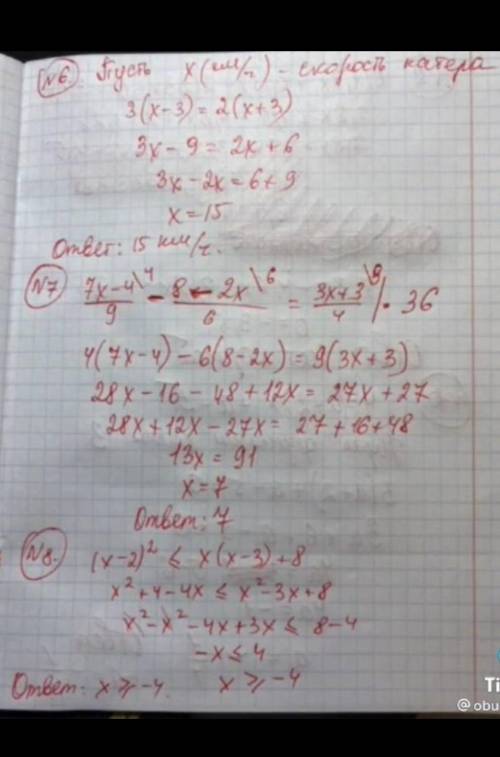 №6. Пусть x (км/ч) - скорость катера
3(x-3) = 2(x+3)
3x - 9 = 2x + 6
3x - 2x = 6 + 9
x = 15
Ответ: 15 км/ч.
№7 (7x-4)/9 \4 - (8-2x)/6 \6 = (3x+3)/4 \9 | · 36
4(7x-4) - 6(8-2x) = 9(3x+3)
28x - 16 - 48 + 12x = 27x + 27
28x + 12x - 27x = 27 + 16 + 48
13x = 91
x = 7
Ответ: 7
№8. (x-2)² ≤ x(x-3) + 8
x² + 4 - 4x ≤ x² - 3x + 8
x² - x² - 4x + 3x ≤ 8 - 4
-x ≤ 4
Ответ: x ≥ -4. x ≥ -4
Ti
@obu